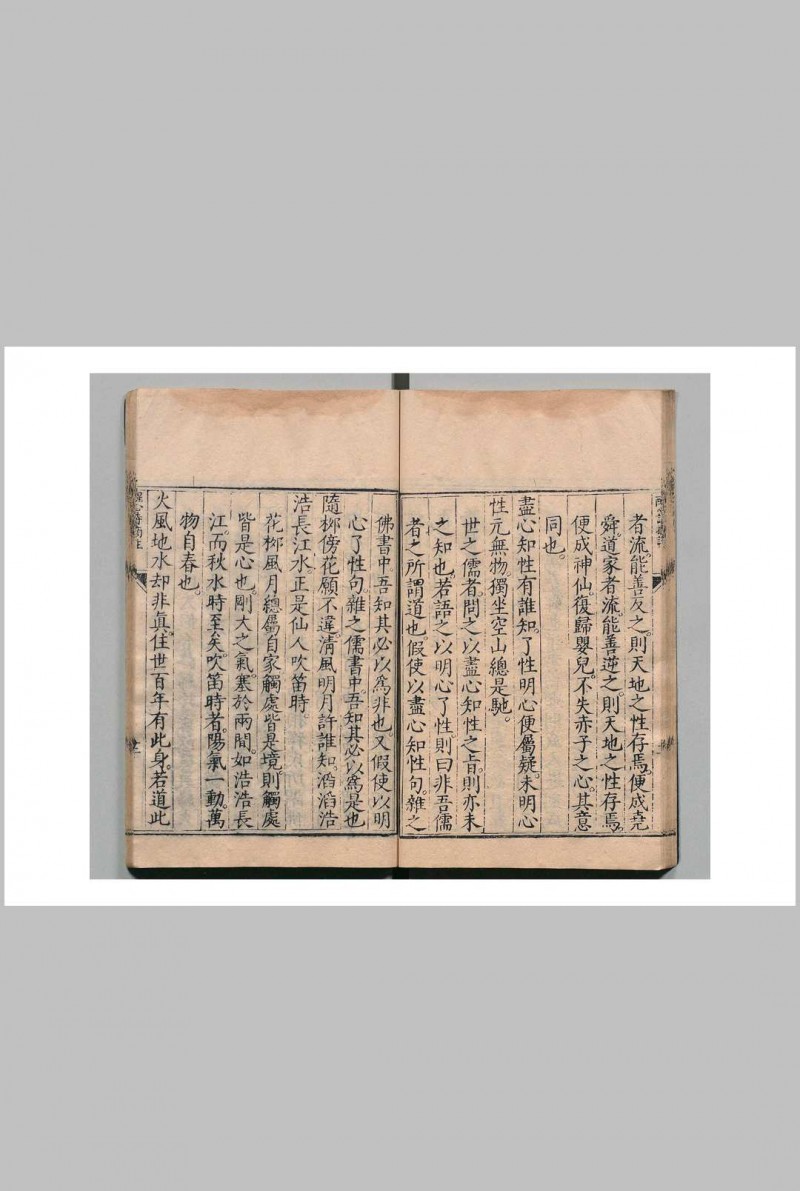 者流。能善反之。則天地之性存焉。便成堯
舜。道家者流。能善逆之。則天地之性存焉。
便成神仙。復歸嬰兒。不失赤子之心。其意
同也。
盡心知性有誰知。了性明心便屬疑。未明心
性元無物。獨坐空山總是馳。
世之儒者。問之以盡心知性之旨。則亦未
之知也。若語之以明心了性。則曰非吾儒
者之所謂道也。假使以盡心知性句。雜之
佛書中。吾知其必以為非也。又假使以明
心了性句。雜之儒書中。吾知其必以為是也
隨柳傍花願不違。清風明月許誰知。滔滔浩
浩長江水。正是仙人吹笛時
花柳風月。總屬自家。觸處皆是境。則觸處
皆是心也。剛大之氣。塞於兩間。如浩浩長
江。而秋水時至矣。吹笛時者。陽氣一動。萬
物自春也。
火風地水却非眞。住世百年有此身。若道此